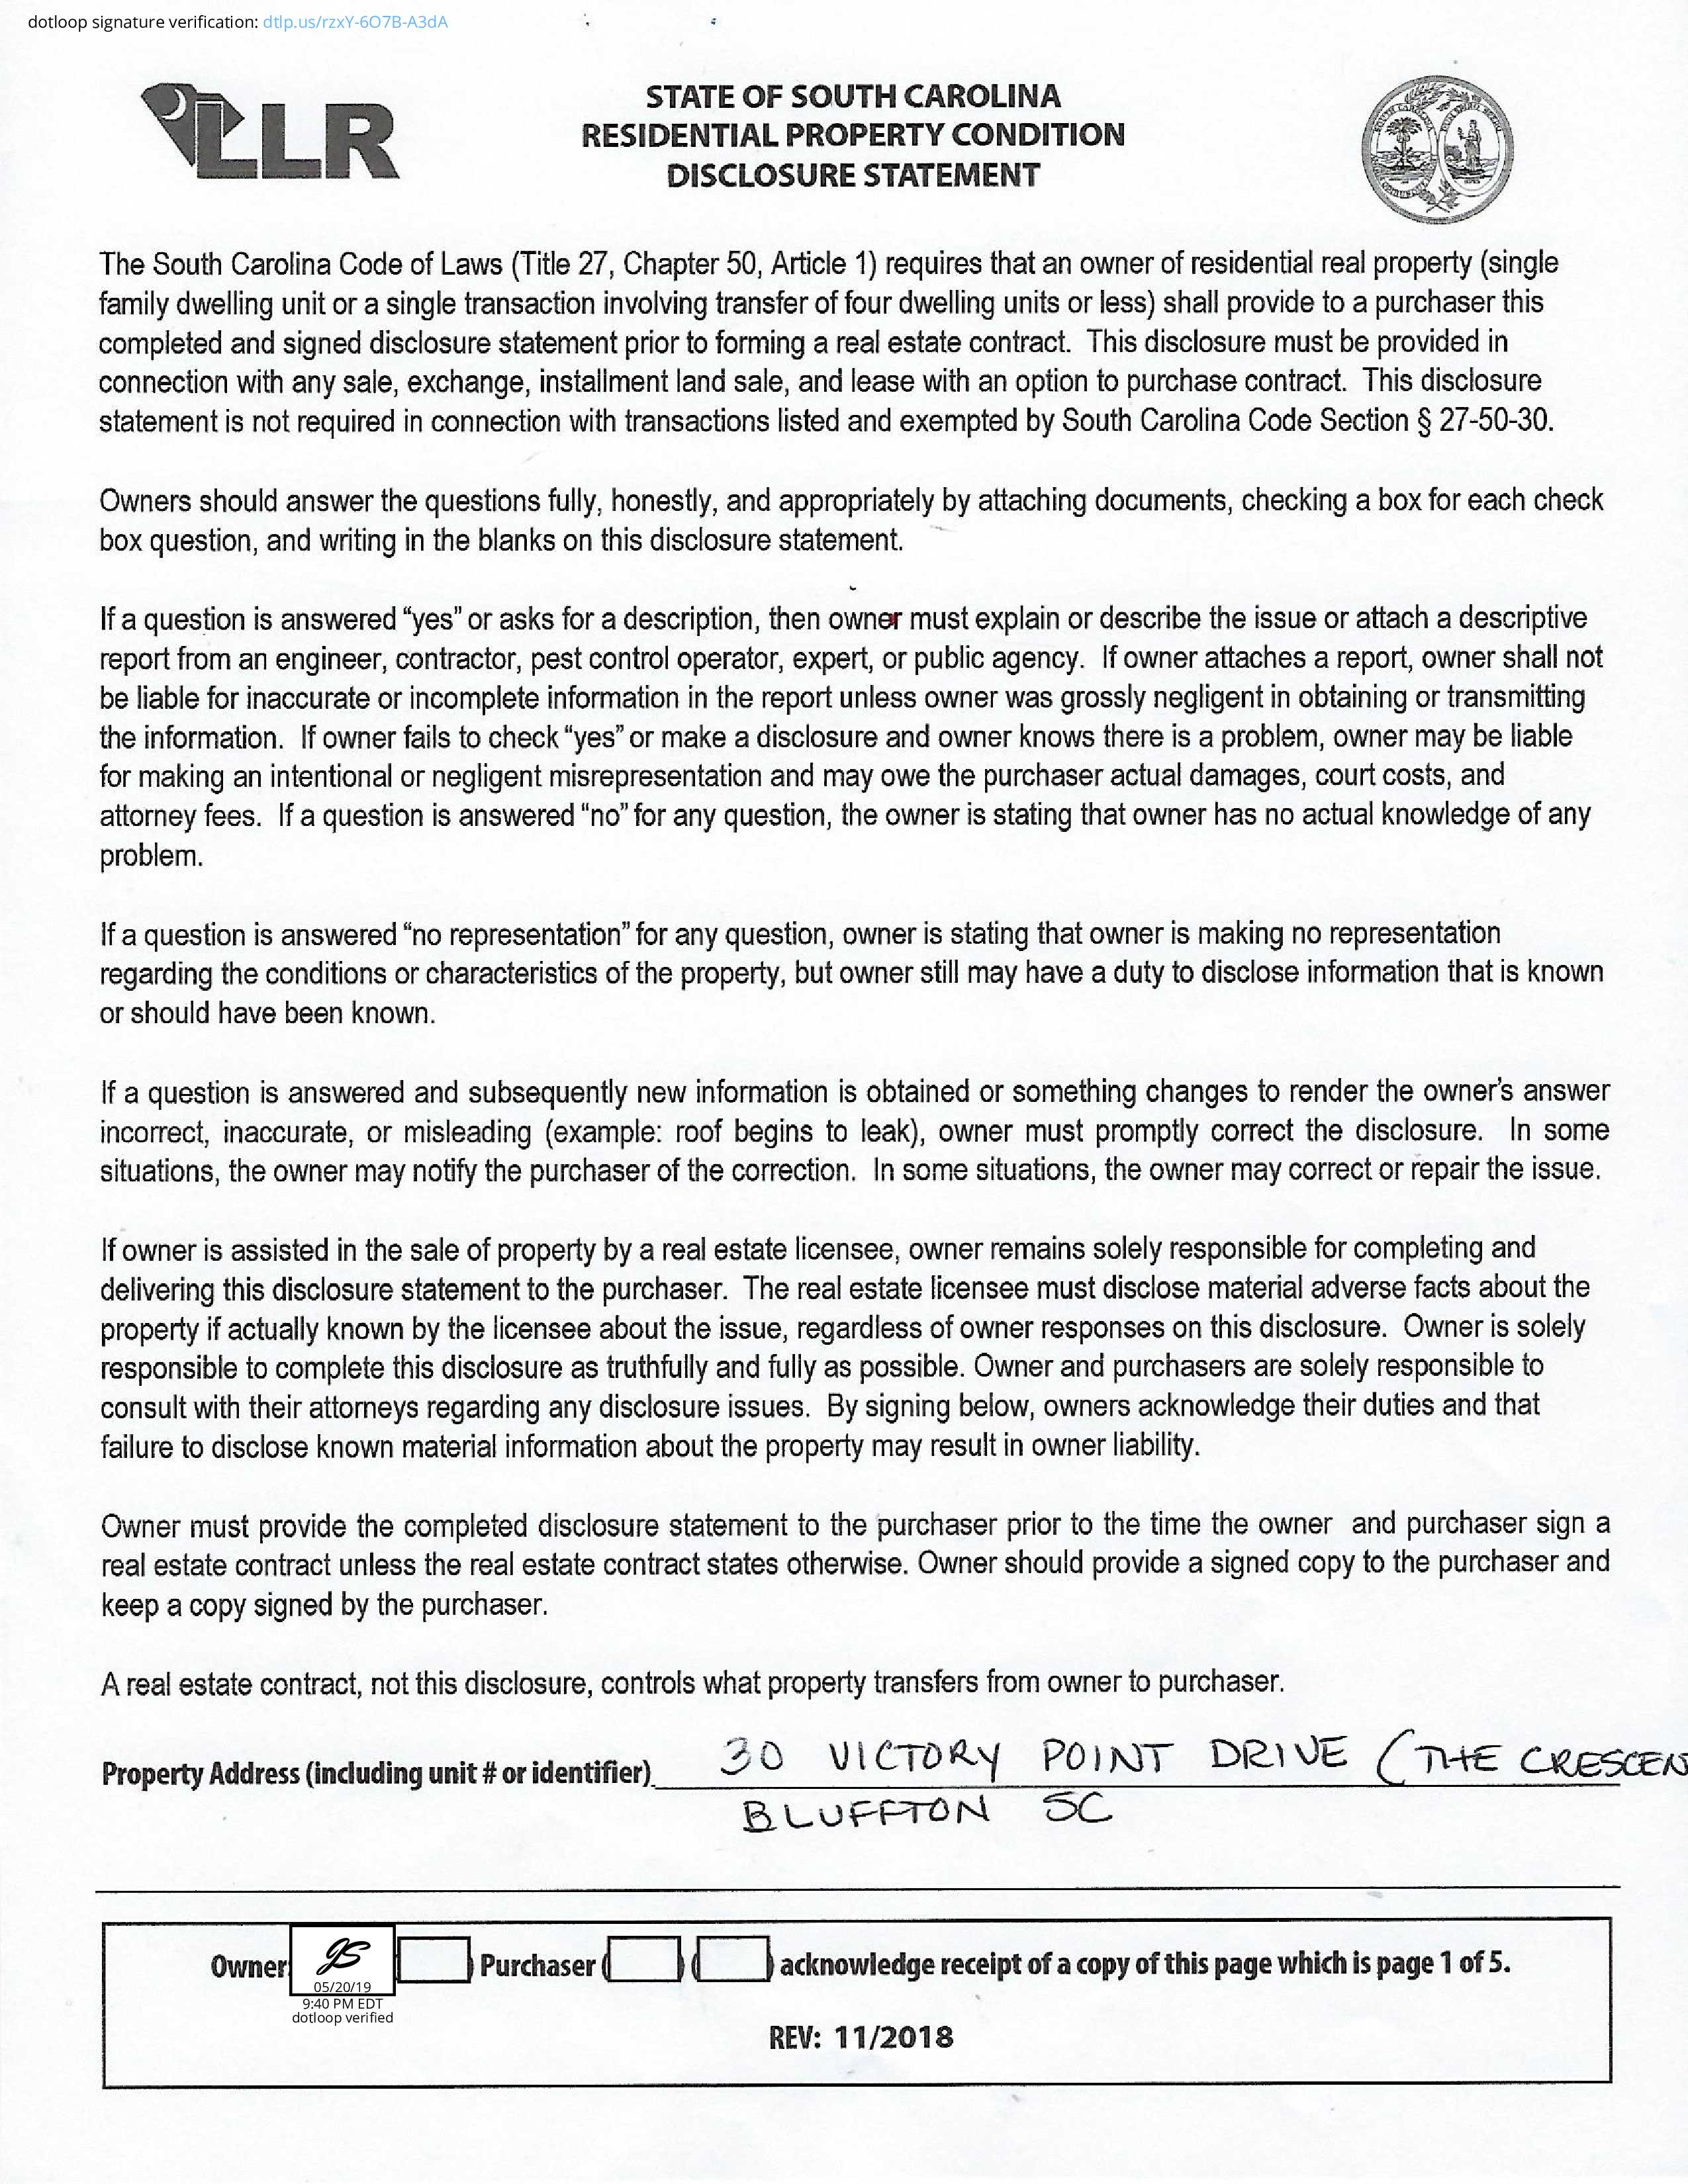 dotloop signature verification: dtlp.us/rzxY-6O7B-A3dA
LLR
STATE OF SOUTH CAROLINA
RESIDENTIAL PROPERTY CONDITION
DISCLOSURE STATEMENT
The South Carolina Code of Laws (Title 27, Chapter 50, Article 1) requires that an owner of residential real property (single
family dwelling unit or a single transaction involving transfer of four dwelling units or less) shall provide to a purchaser this
completed and signed disclosure statement prior to forming a real estate contract. This disclosure must be provided in
connection with any sale, exchange, installment land sale, and lease with an option to purchase contract. This disclosure
statement is not required in connection with transactions listed and exempted by South Carolina Code Section § 27-50-30.
Owners should answer the questions fully, honestly, and appropriately by attaching documents, checking a box for each check
box question, and writing in the blanks on this disclosure statement.
If a question is answered “yes” or asks for a description, then owner must explain or describe the issue or attach a descriptive
report from an engineer, contractor, pest control operator, expert, or public agency. If owner attaches a report, owner shall not
be liable for inaccurate or incomplete information in the report unless owner was grossly negligent in obtaining or transmitting
the information. If owner fails to check “yes” or make a disclosure and owner knows there is a problem, owner may be liable
for making an intentional or negligent misrepresentation and may owe the purchaser actual damages, court costs, and
attorney fees. If a question is answered “no” for any question, the owner is stating that owner has no actual knowledge of any
problem.
If a question is answered “no representation” for any question, owner is stating that owner is making no representation
regarding the conditions or characteristics of the property, but owner still may have a duty to disclose information that is known
or should have been known.
If a question is answered and subsequently new information is obtained or something changes to render the owner's answer
incorrect, inaccurate, or misleading (example: roof begins to leak), owner must promptly correct the disclosure. In some
situations, the owner may notify the purchaser of the correction. In some situations, the owner may correct or repair the issue.
If owner is assisted in the sale of property by a real estate licensee, owner remains solely responsible for completing and
delivering this disclosure statement to the purchaser. The real estate licensee must disclose material adverse facts about the
property if actually known by the licensee about the issue, regardless of owner responses on this disclosure. Owner is solely
responsible to complete this disclosure as truthfully and fully as possible. Owner and purchasers are solely responsible to
consult with their attorneys regarding any disclosure issues. By signing below, owners acknowledge their duties and that
failure to disclose known material information about the property may result in owner liability.
Owner must provide the completed disclosure statement to the purchaser prior to the time the owner and purchaser sign a
real estate contract unless the real estate contract states otherwise. Owner should provide a signed copy to the purchaser and
keep a copy signed by the purchaser.
A real estate contract, not this disclosure, controls what property transfers from owner to purchaser.
Property Address (including unit # or identifier) 30 VICTORY POINT DRIVE (THE CRESCEN
BLUFFTON SC
Owner JS Purchaser ( ) ( ) acknowledge receipt of a copy of this page which is page 1 of 5.
05/20/19
9:40 PM EDT
dotloop verified
REV: 11/2018